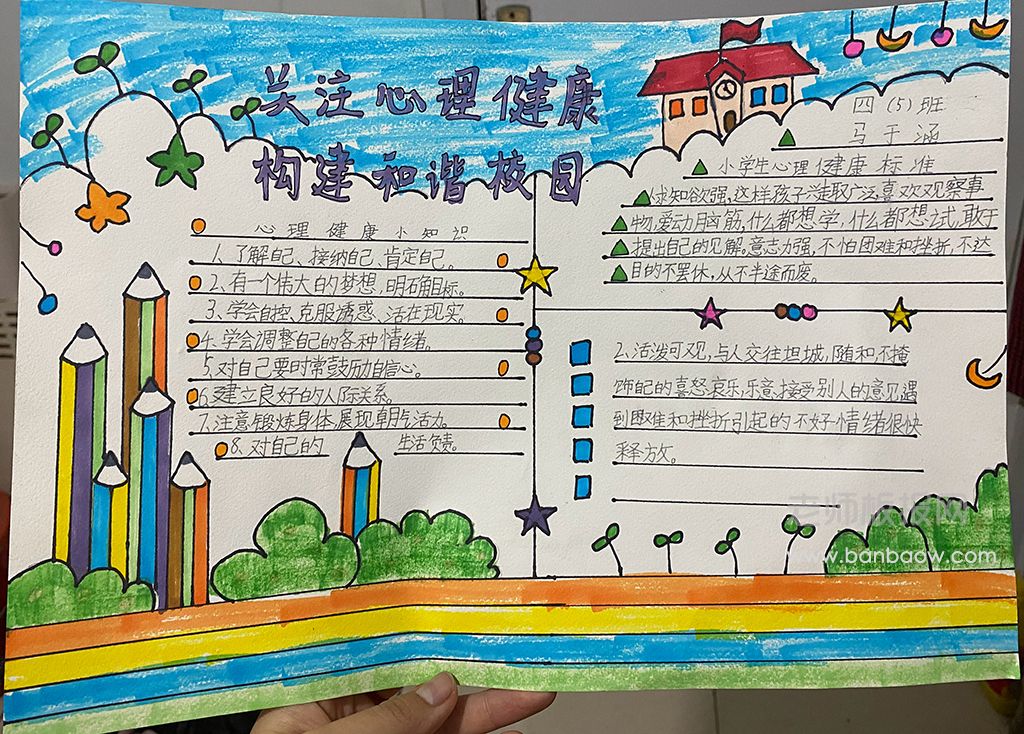 关注心理健康
构建和谐校园
四（5）班
马于涵
心理健康小知识
1、了解自己、接纳自己、肯定自己。
2、有一个伟大的梦想，明确目标。
3、学会自控、克服诱惑、活在现实。
4、学会调整自己的各种情绪。
5、对自己要时常鼓励自信心。
6、建立良好的人际关系。
7、注意锻炼身体，展现朝气活力。
8、对自己的 生活负责。
小学生心理健康标准
求知欲强，这样孩子涉取广泛，喜欢观察事
物，爱动脑筋，什么都想学，什么都想试，敢于
提出自己的见解。意志力强，不怕困难和挫折，不达
目的不罢休，从不半途而废。
2、活泼可观，与人交往坦城，随和不掩
饰自己的喜怒哀乐，乐意接受别人的意见遇
到困难和挫折引起的不好情绪很快
释放。
老师板报网
www.banbaow.com